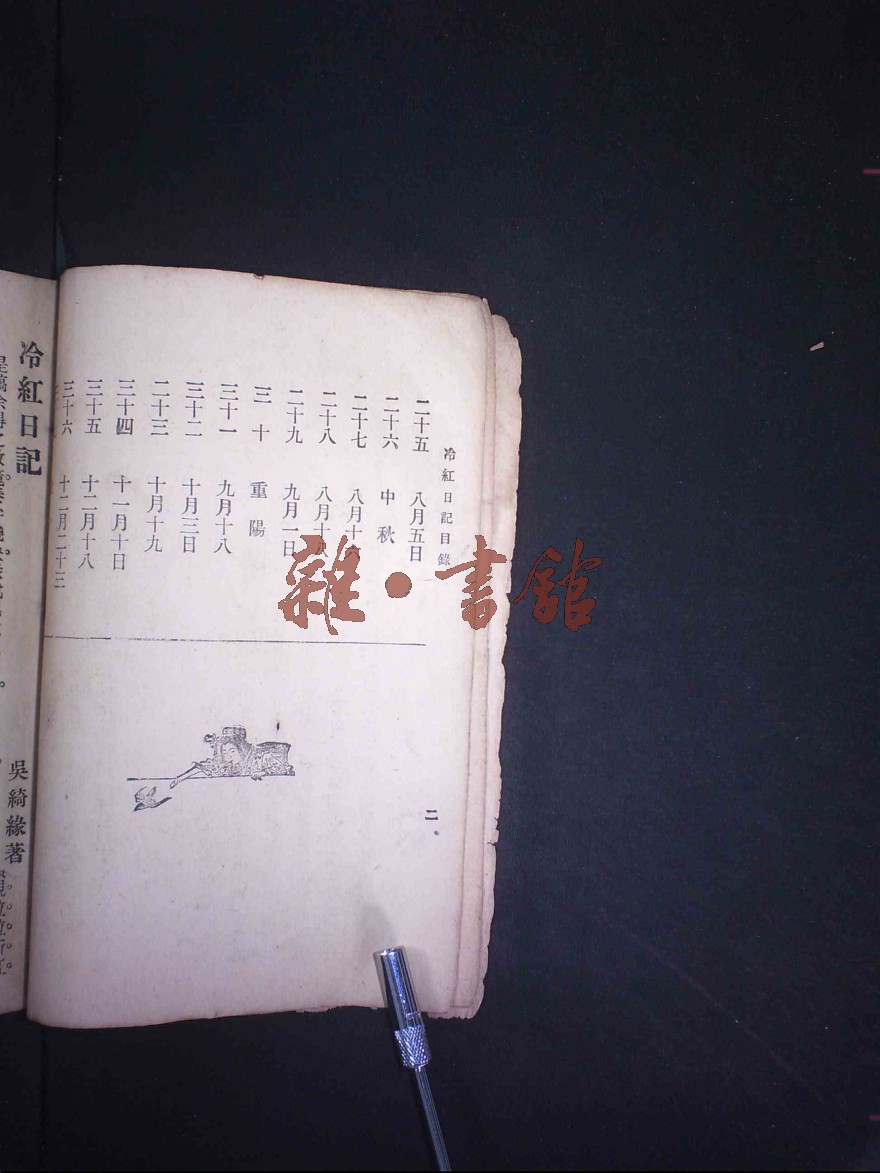 冷紅日記目錄
二十五 八月五日
二十六 中秋
二十七 八月十六
二十八 八月十八
二十九 九月一日
三十 重陽
三十一 九月十八
三十二 十月三日
二十三 十月十九
三十四 十一月十日
三十五 十二月十八
三十六 十二月二十三
二
雜·書館
冷紅日記
吳綺緣著